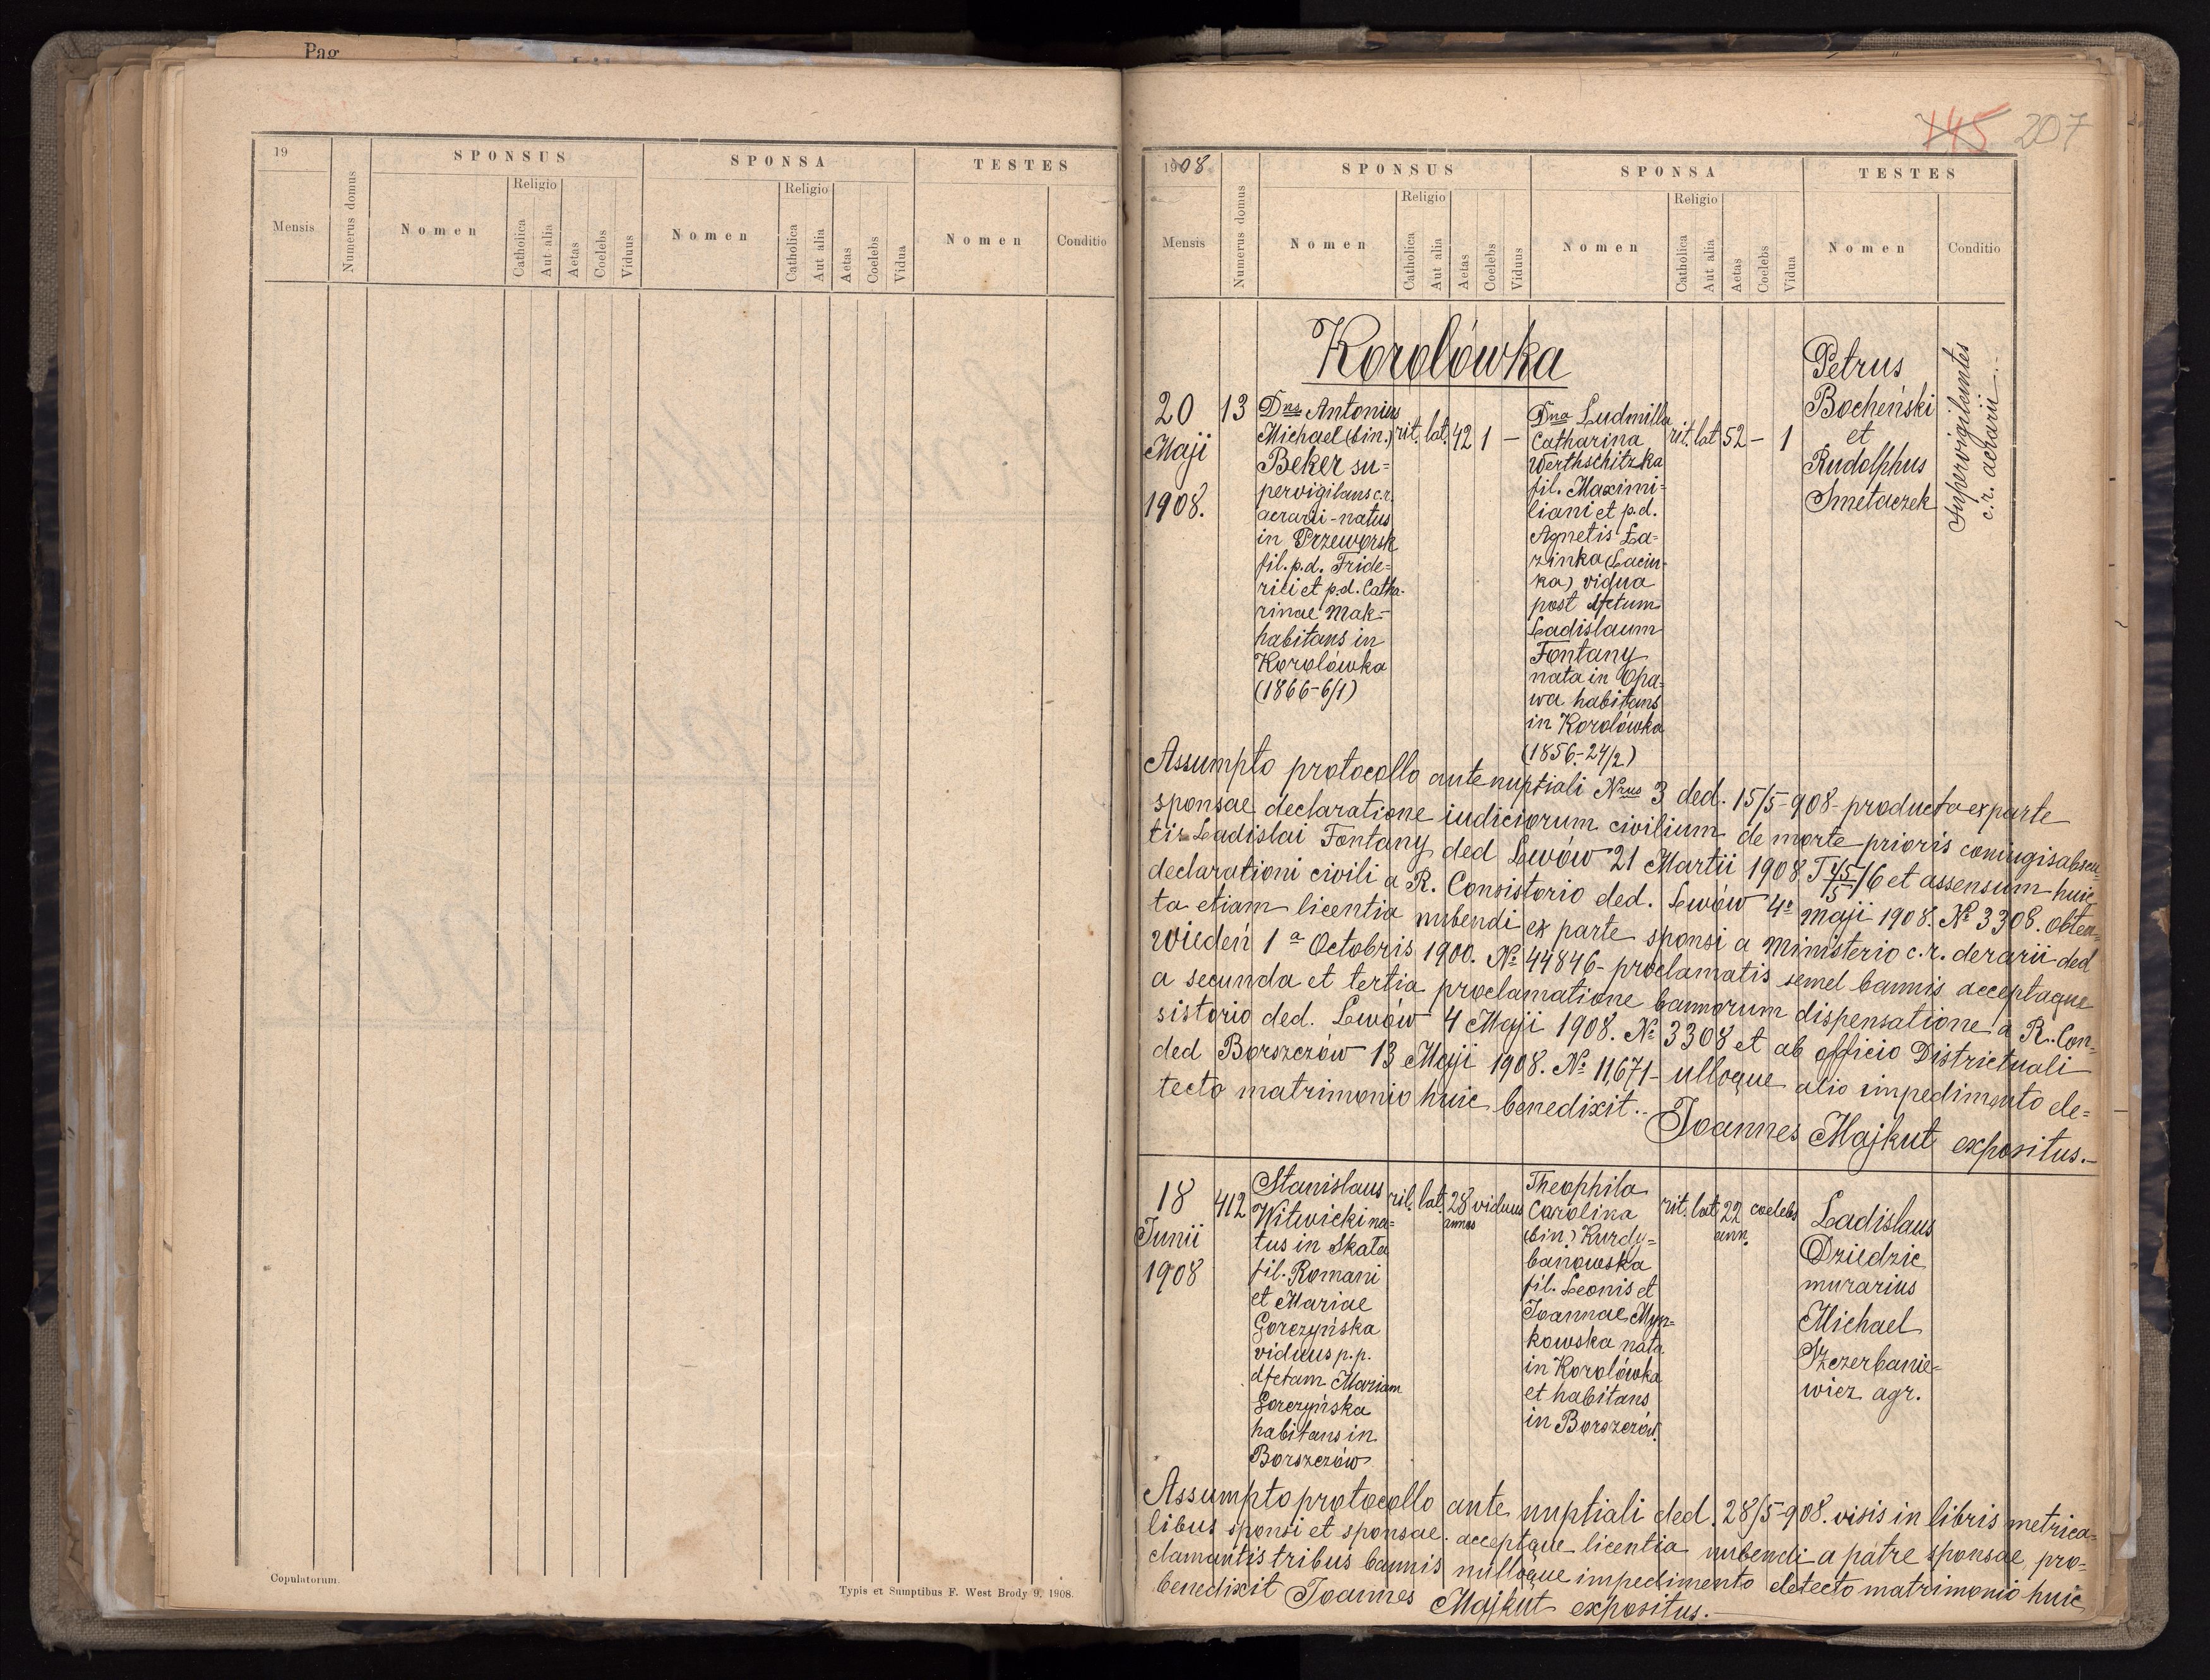 Pag
19
SPONSUS
SPONSA
TESTES
Mensis
Numerus domus
Nomen
Religio
Catholica
Aut alia
Aetas
Coelebs
Viduus
Nomen
Religio
Catholica
Aut alia
Aetas
Coelebs
Vidua
Nomen
Conditio
Copulatorum.
Typis et Sumptibus F. West Brody 9. 1908.
145 207
1908
SPONSUS
SPONSA
TESTES
Mensis
Numerus domus
Nomen
Religio
Catholica
Aut alia
Aetas
Coelebs
Viduus
Nomen
Religio
Catholica
Aut alia
Aetas
Coelebs
Vidua
Nomen
Conditio
Korolówka
20
Maji
1908.
13
Dns Antonius
Michael (bin.)
Beker su=
pervigilans c.r.
aerarii - natus
in Przeworsk
fil. p.d. Fride=
rici et p.d. Catha-
rinae Mak-
habitans in
Korolówka
(1866-6/1)
rit. lat. 42 1 —
Dna Ludmilla
Catharina
Werthschitzka
fil. Maximi=
liani et p.d.
Agnetis La=
zinka (Lacin-
ka) vidua
post dfctum
Ladislaum
Fontany
nata in Opa=
wa habitans
in Korolówka
(1856-24/2)
rit. lat 52 — 1
Petrus
Bocheński
et
Rudolphus
Smetaczek
supervigilentes
c.r. aerarii
Assumpto protocollo antenuptiali Nrus 3 ded. 15/5-908- producta ex parte
sponsae declaratione iudiciorum civilium de morte prioris coniugis absen=
tis Ladislai Fontany ded Lwów 21 Martii 1908 T 45/5/6 et assensum huic
declarationi civili a R. Consistorio ded. Lwów 4o maji 1908. No 3308. obten=
ta etiam licentia nubendi ex parte sponsi a ministerio c.r. aerarii ded
Wiedeń 1a Octobris 1900. No 44846- proclamatis semel bannis acceptaque
a secunda et tertia proclamatione bannorum dispensatione a R. Con=
sistorio ded. Lwów 4 Maji 1908. No 3308 et ab officio Districtuali
ded Borszczów 13 Maji 1908. No 11,671- ulloque alio impedimento de=
tecto matrimonio huic benedixit. Joannes Majkut expositus.-
18
Junii
1908
412
Stanislaus
Witwicki na=
tus in Skała
fil. Romani
et Mariae
Gorczyńska
viduus p.p.
dfctam Mariam
Gorczyńska
habitans in
Borszczów
rit. lat. 28 viduus
annos
Theophila
Carolina
(bin) Kurdy=
banowska
fil. Leonis et
Joannae Myn=
kowska nata
in Korolówka
et habitans
in Borszczów.
rit. lat. 22 coelebs
ann.
Ladislaus
Dziedzic
murarius
Michael
Szczerbanie=
wicz agr.
Assumpto protocollo ante nuptiali ded. 28/5-908. visis in libris metrica=
libus sponsi et sponsae. acceptque licentia nubendi a patre sponsae, pro=
clamantis tribus bannis nulloque impedimento detecto matrimonio huic
benedixit Joannes Majkut expositus.